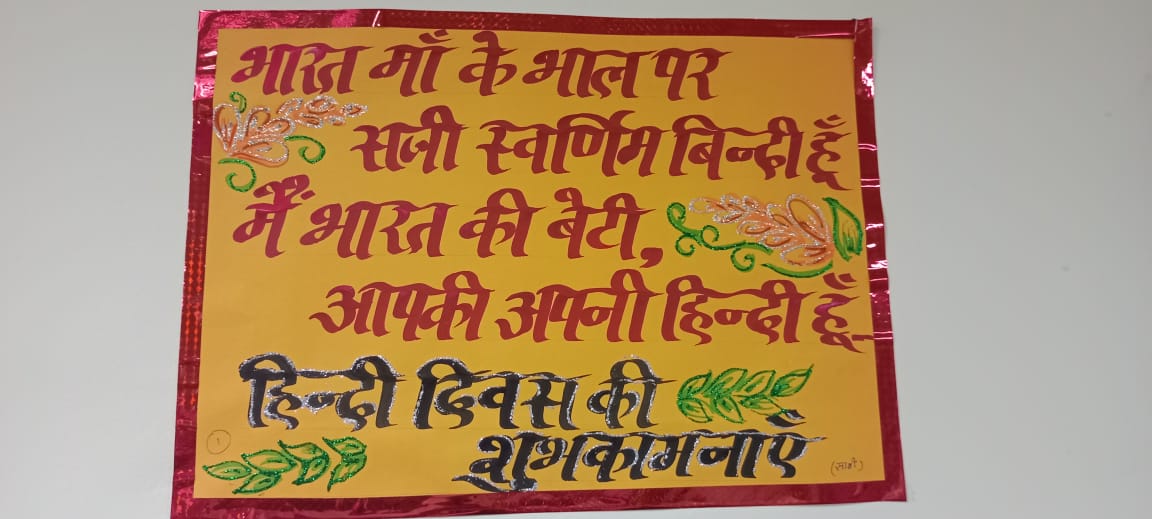 भारत माँ के भाल पर
सजी स्वर्णिम बिन्दी हूँ
मैं भारत की बेटी,
आपकी अपनी हिन्दी हूँ
हिन्दी दिवस की
शुभकामनाएँ
1